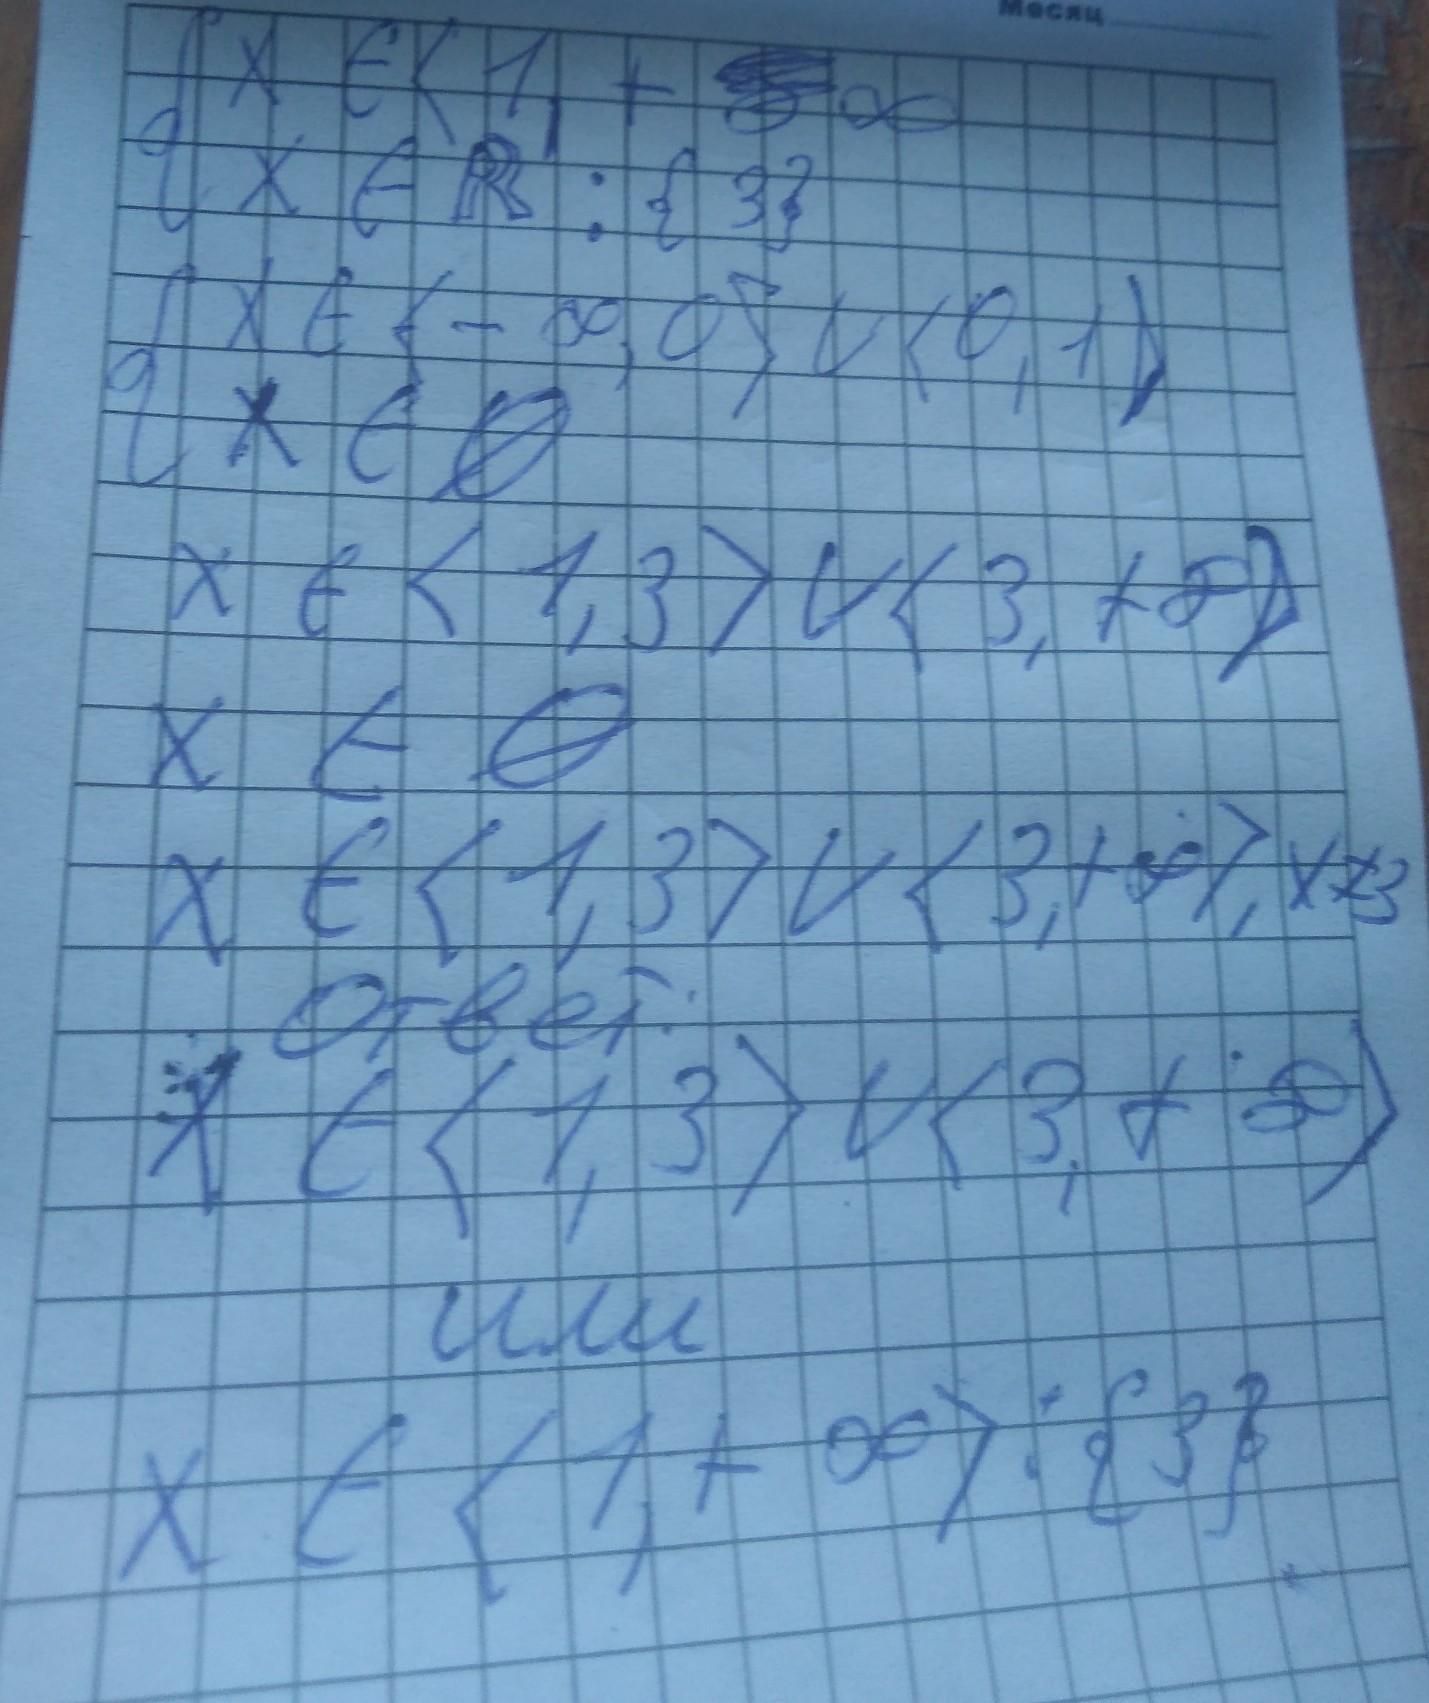 Месяц
{ x ∈ ⟨ 1, + ∞
{ x ∈ ℝ : { 3 }
{ x ∈ ⟨ - ∞, 0 ⟩ ∪ ⟨ 0, 1 ⟩
{ x ∈ ∅
x ∈ ⟨ 1, 3 ⟩ ∪ ⟨ 3, + ∞ ⟩
x ∈ ∅
x ∈ ⟨ 1, 3 ⟩ ∪ ⟨ 3, + ∞ ⟩, x ≠ 3
Ответ:
x ∈ ⟨ 1, 3 ⟩ ∪ ⟨ 3, + ∞ ⟩
или
x ∈ ⟨ 1, + ∞ ⟩ : { 3 }